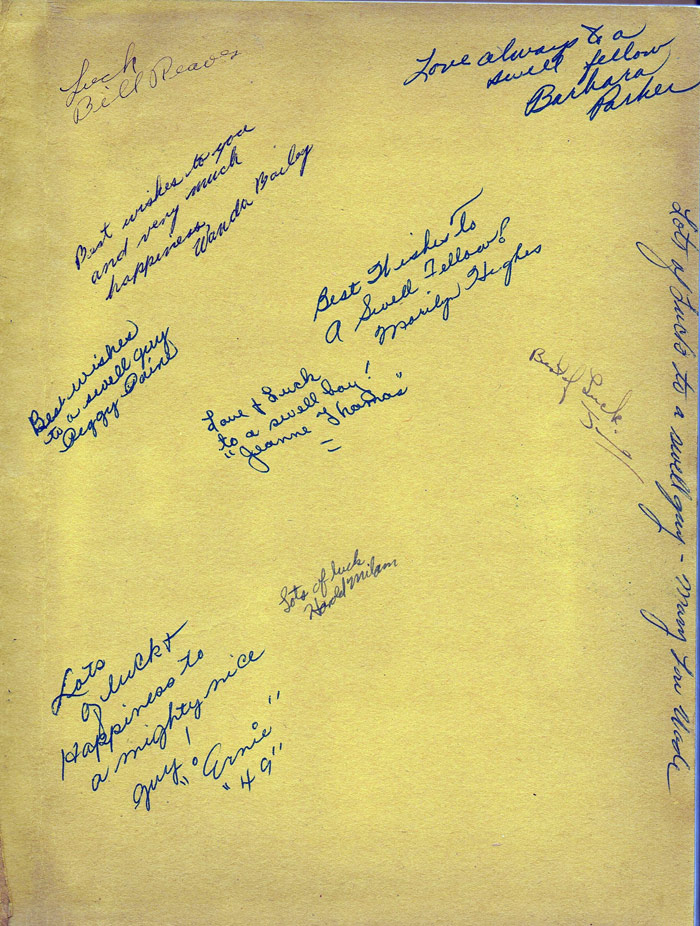 Luck
Bill Reaves
Love always to a
swell fellow
Barbara
Parker
Best wishes to you
and very much
happiness
Wanda Bailey
Best Wishes To
A Swell Fellow!
Marilyn Hughes
Best wishes
to a swell guy
Peggy Paine
Love & Luck
to a swell boy!
"Jeanne Thomas"
Best of Luck.
Lots of Luck to a swell guy - Mary Lou Wade
Lots of luck
Harold Milam
Lots
of luck &
Happiness to
a mighty nice
guy!
"Ernie"
"49"